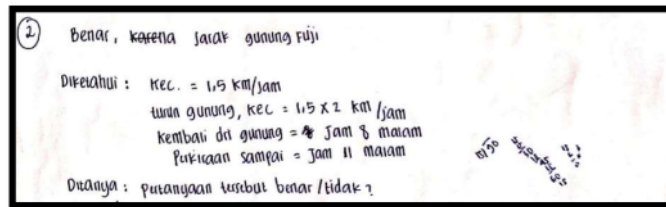 2 Benar, karena jarak gunung Fuji
Diketahui : Kec. = 1,5 km/jam
turun gunung, kec = 1,5 x 2 km/jam
kembali dri gunung = jam 8 malam
Perkiraan sampai = Jam 11 malam
Ditanya : Pertanyaan tersebut benar/tidak ?